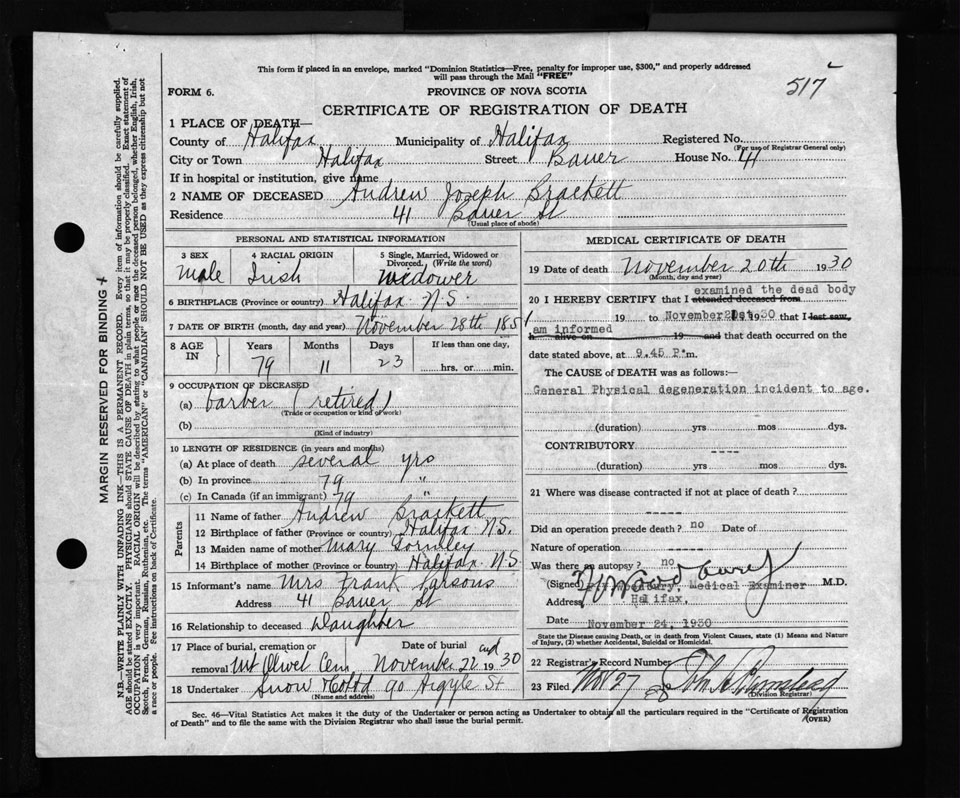 This form if placed in an envelope, marked "Dominion Statistics—Free, penalty for improper use, $300," and properly addressed
will pass through the Mail "FREE"
517
FORM 6.
PROVINCE OF NOVA SCOTIA
CERTIFICATE OF REGISTRATION OF DEATH
1 PLACE OF DEATH—
County of Halifax Municipality of Halifax Registered No.
(For use of Registrar General only)
City or Town Halifax Street Bauer House No. 41
If in hospital or institution, give name
2 NAME OF DECEASED Andrew Joseph Brackett
Residence 41 Bauer St
(Usual place of abode)
PERSONAL AND STATISTICAL INFORMATION
3 SEX 4 RACIAL ORIGIN 5 Single, Married, Widowed or
Divorced. (Write the word)
Male Irish Widower
6 BIRTHPLACE (Province or country) Halifax N.S.
7 DATE OF BIRTH (month, day and year) November 28th 1851
8 AGE IN Years Months Days If less than one day,
79 11 23 hrs. or min.
9 OCCUPATION OF DECEASED
(a) barber (retired)
(Trade or occupation or kind of work)
(b)
(Kind of industry)
10 LENGTH OF RESIDENCE (in years and months)
(a) At place of death several yrs
(b) In province 79 "
(c) In Canada (if an immigrant) 79 "
Parents
11 Name of father Andrew Brackett
12 Birthplace of father (Province or country) Halifax N.S.
13 Maiden name of mother Mary Gormley
14 Birthplace of mother (Province or country) Halifax N.S
15 Informant's name Mrs Frank Parsons
Address 41 Bauer St
16 Relationship to deceased Daughter
17 Place of burial, cremation or Date of burial
removal Mt Olivet Cem. November 22nd 1930
18 Undertaker Snow & Co Ltd 90 Argyle St
(Name and address)
MEDICAL CERTIFICATE OF DEATH
19 Date of death November 20th 1930
(Month, day and year)
examined the dead body
20 I HEREBY CERTIFY that I attended deceased from
19 to November 21st 1930 that I last saw,
am informed
h alive on 19 and that death occurred on
date stated above, at 9.45 P.m.
The CAUSE of DEATH was as follows:—
General Physical degeneration incident to age.
(duration) yrs mos dys.
CONTRIBUTORY ----
(duration) yrs mos dys.
21 Where was disease contracted if not at place of death?
-----
Did an operation precede death? no Date of
Nature of operation -----
Was there an autopsy? no
(Signed) Medical Examiner M.D.
Address Halifax.
Date November 24, 1930
State the Disease causing Death, or in death from Violent Causes, state (1) Means and Nature
of Injury, (2) whether Accidental, Suicidal or Homicidal.
22 Registrar's Record Number
23 Filed Nov 27
(Division Registrar)
Sec. 46—Vital Statistics Act makes it the duty of the Undertaker or person acting as Undertaker to obtain all the particulars required in the "Certificate of Registration
of Death" and to file the same with the Division Registrar who shall issue the burial permit. (OVER)
MARGIN RESERVED FOR BINDING
N.B.—WRITE PLAINLY WITH UNFADING INK—THIS IS A PERMANENT RECORD. Every item of information should be carefully supplied.
AGE should be stated EXACTLY. PHYSICIANS should STATE CAUSE OF DEATH in plain terms, so that it may be properly classified. Exact statement of
OCCUPATION is very important. RACIAL ORIGIN will be described by stating to what people or race the deceased person belonged, whether English, Irish,
Scotch, French, German, Russian, Ruthenian, etc. The terms "AMERICAN" or "CANADIAN" SHOULD NOT BE USED as they express citizenship but not
a race or people. See instructions on back of Certificate.